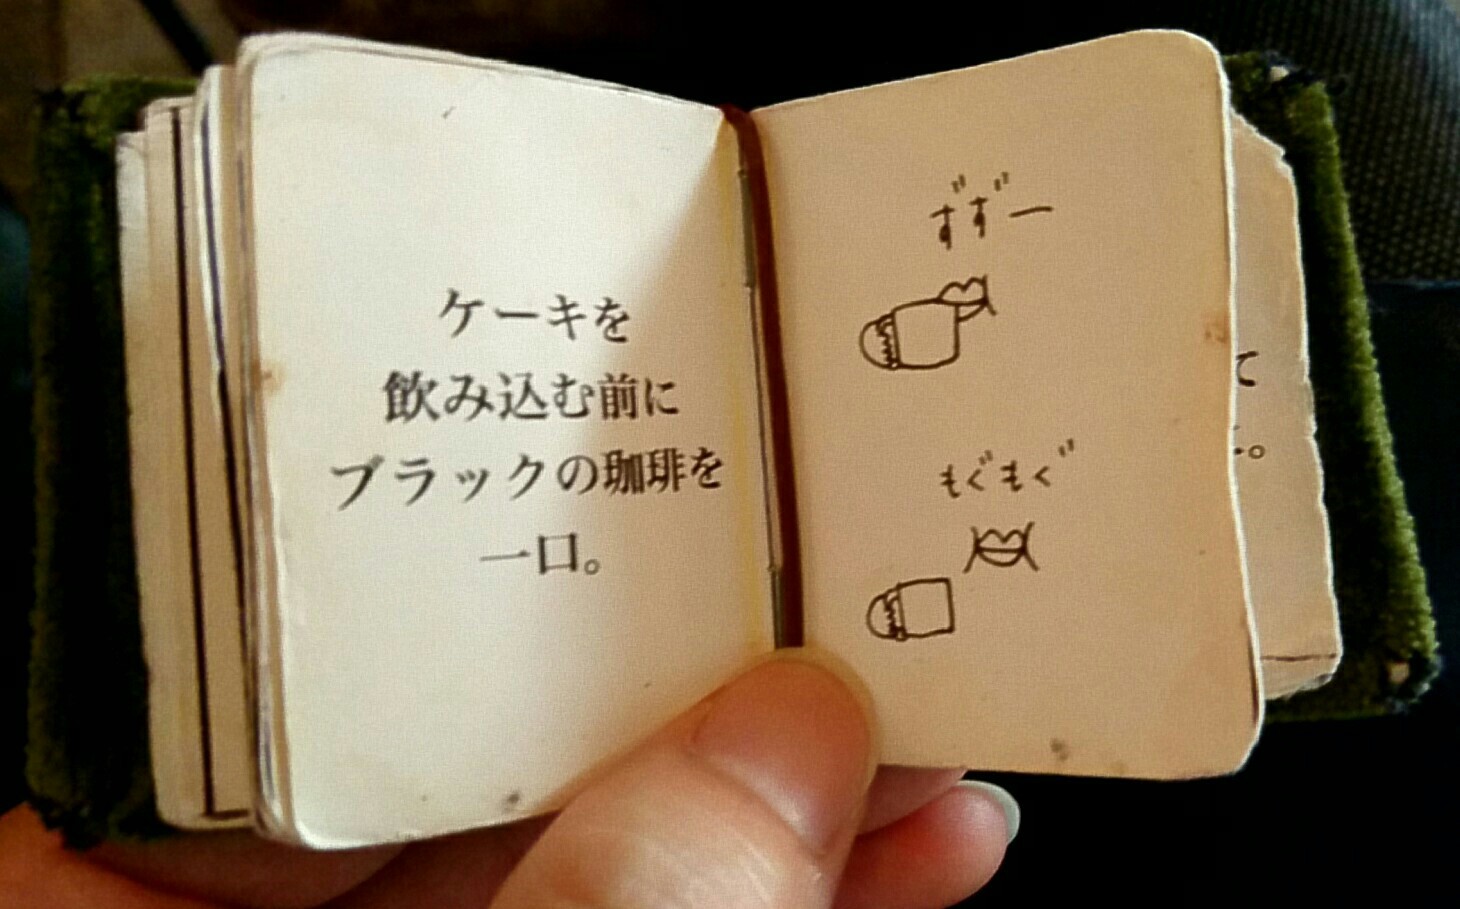 ケーキを
飲み込む前に
ブラックの珈琲を
一口。
ずずー
もぐもぐ
て